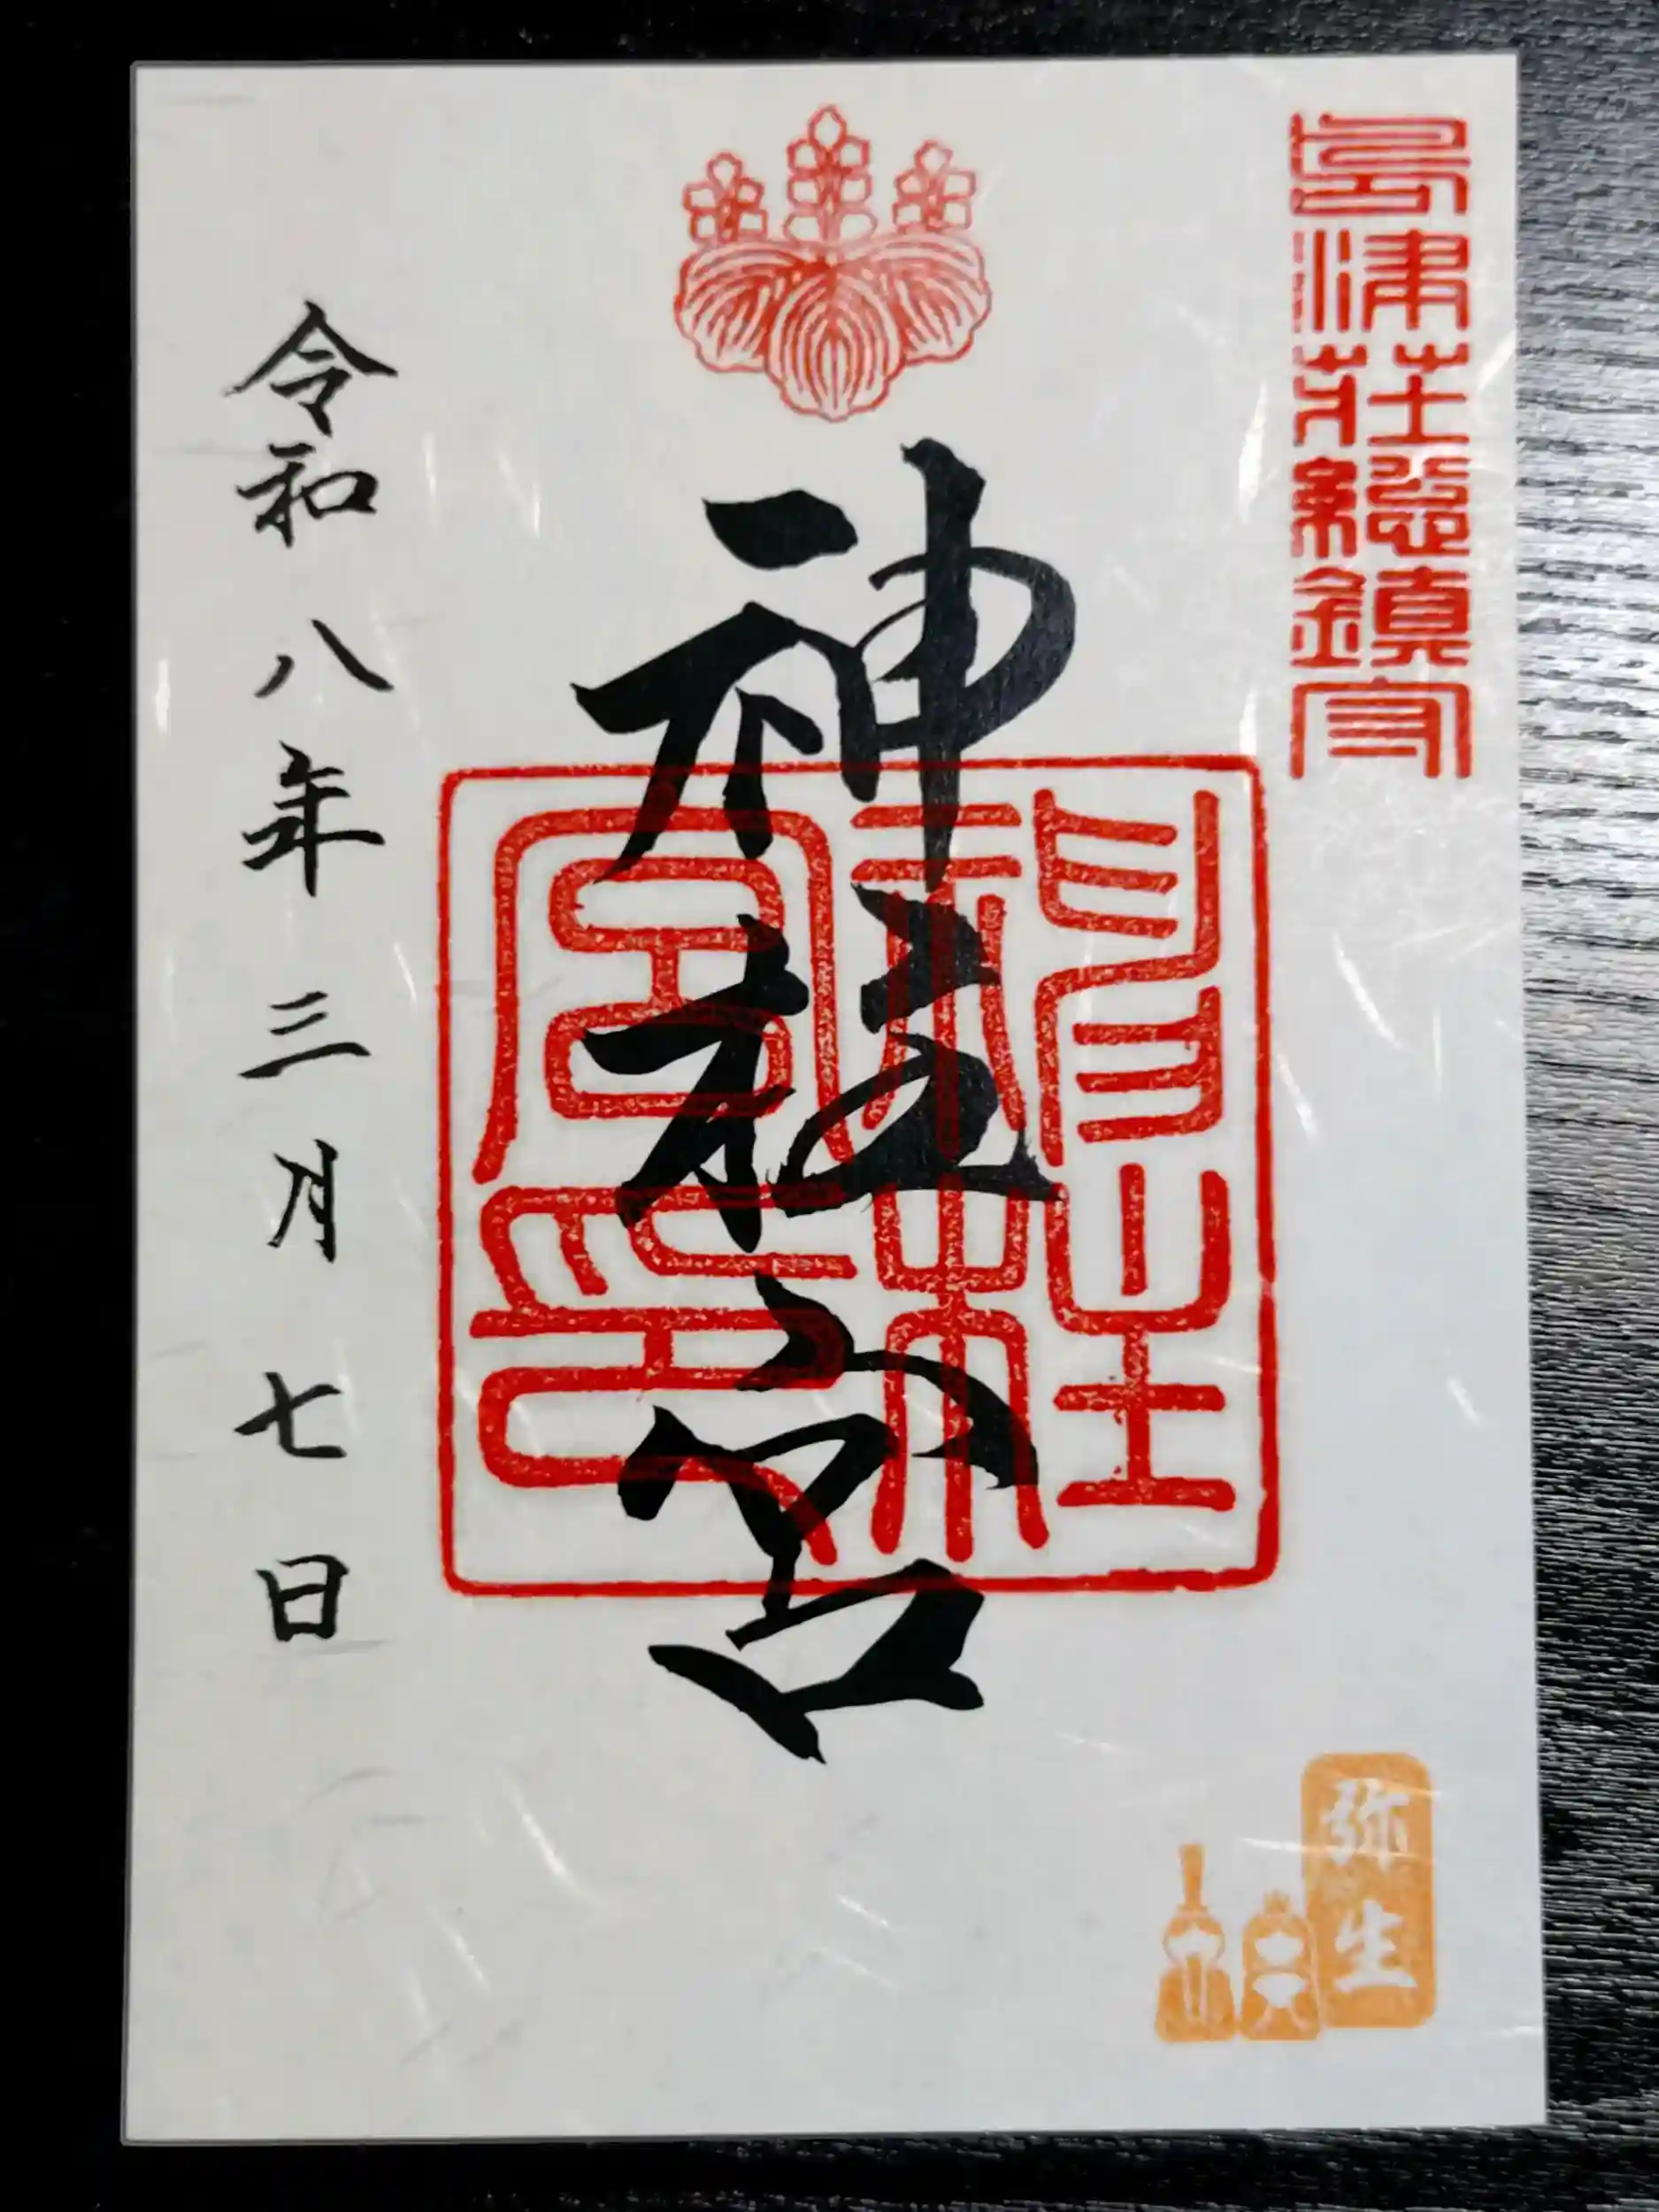 島津莊總鎮守
神柱宮
神柱宮印
令和八年三月七日
弥生